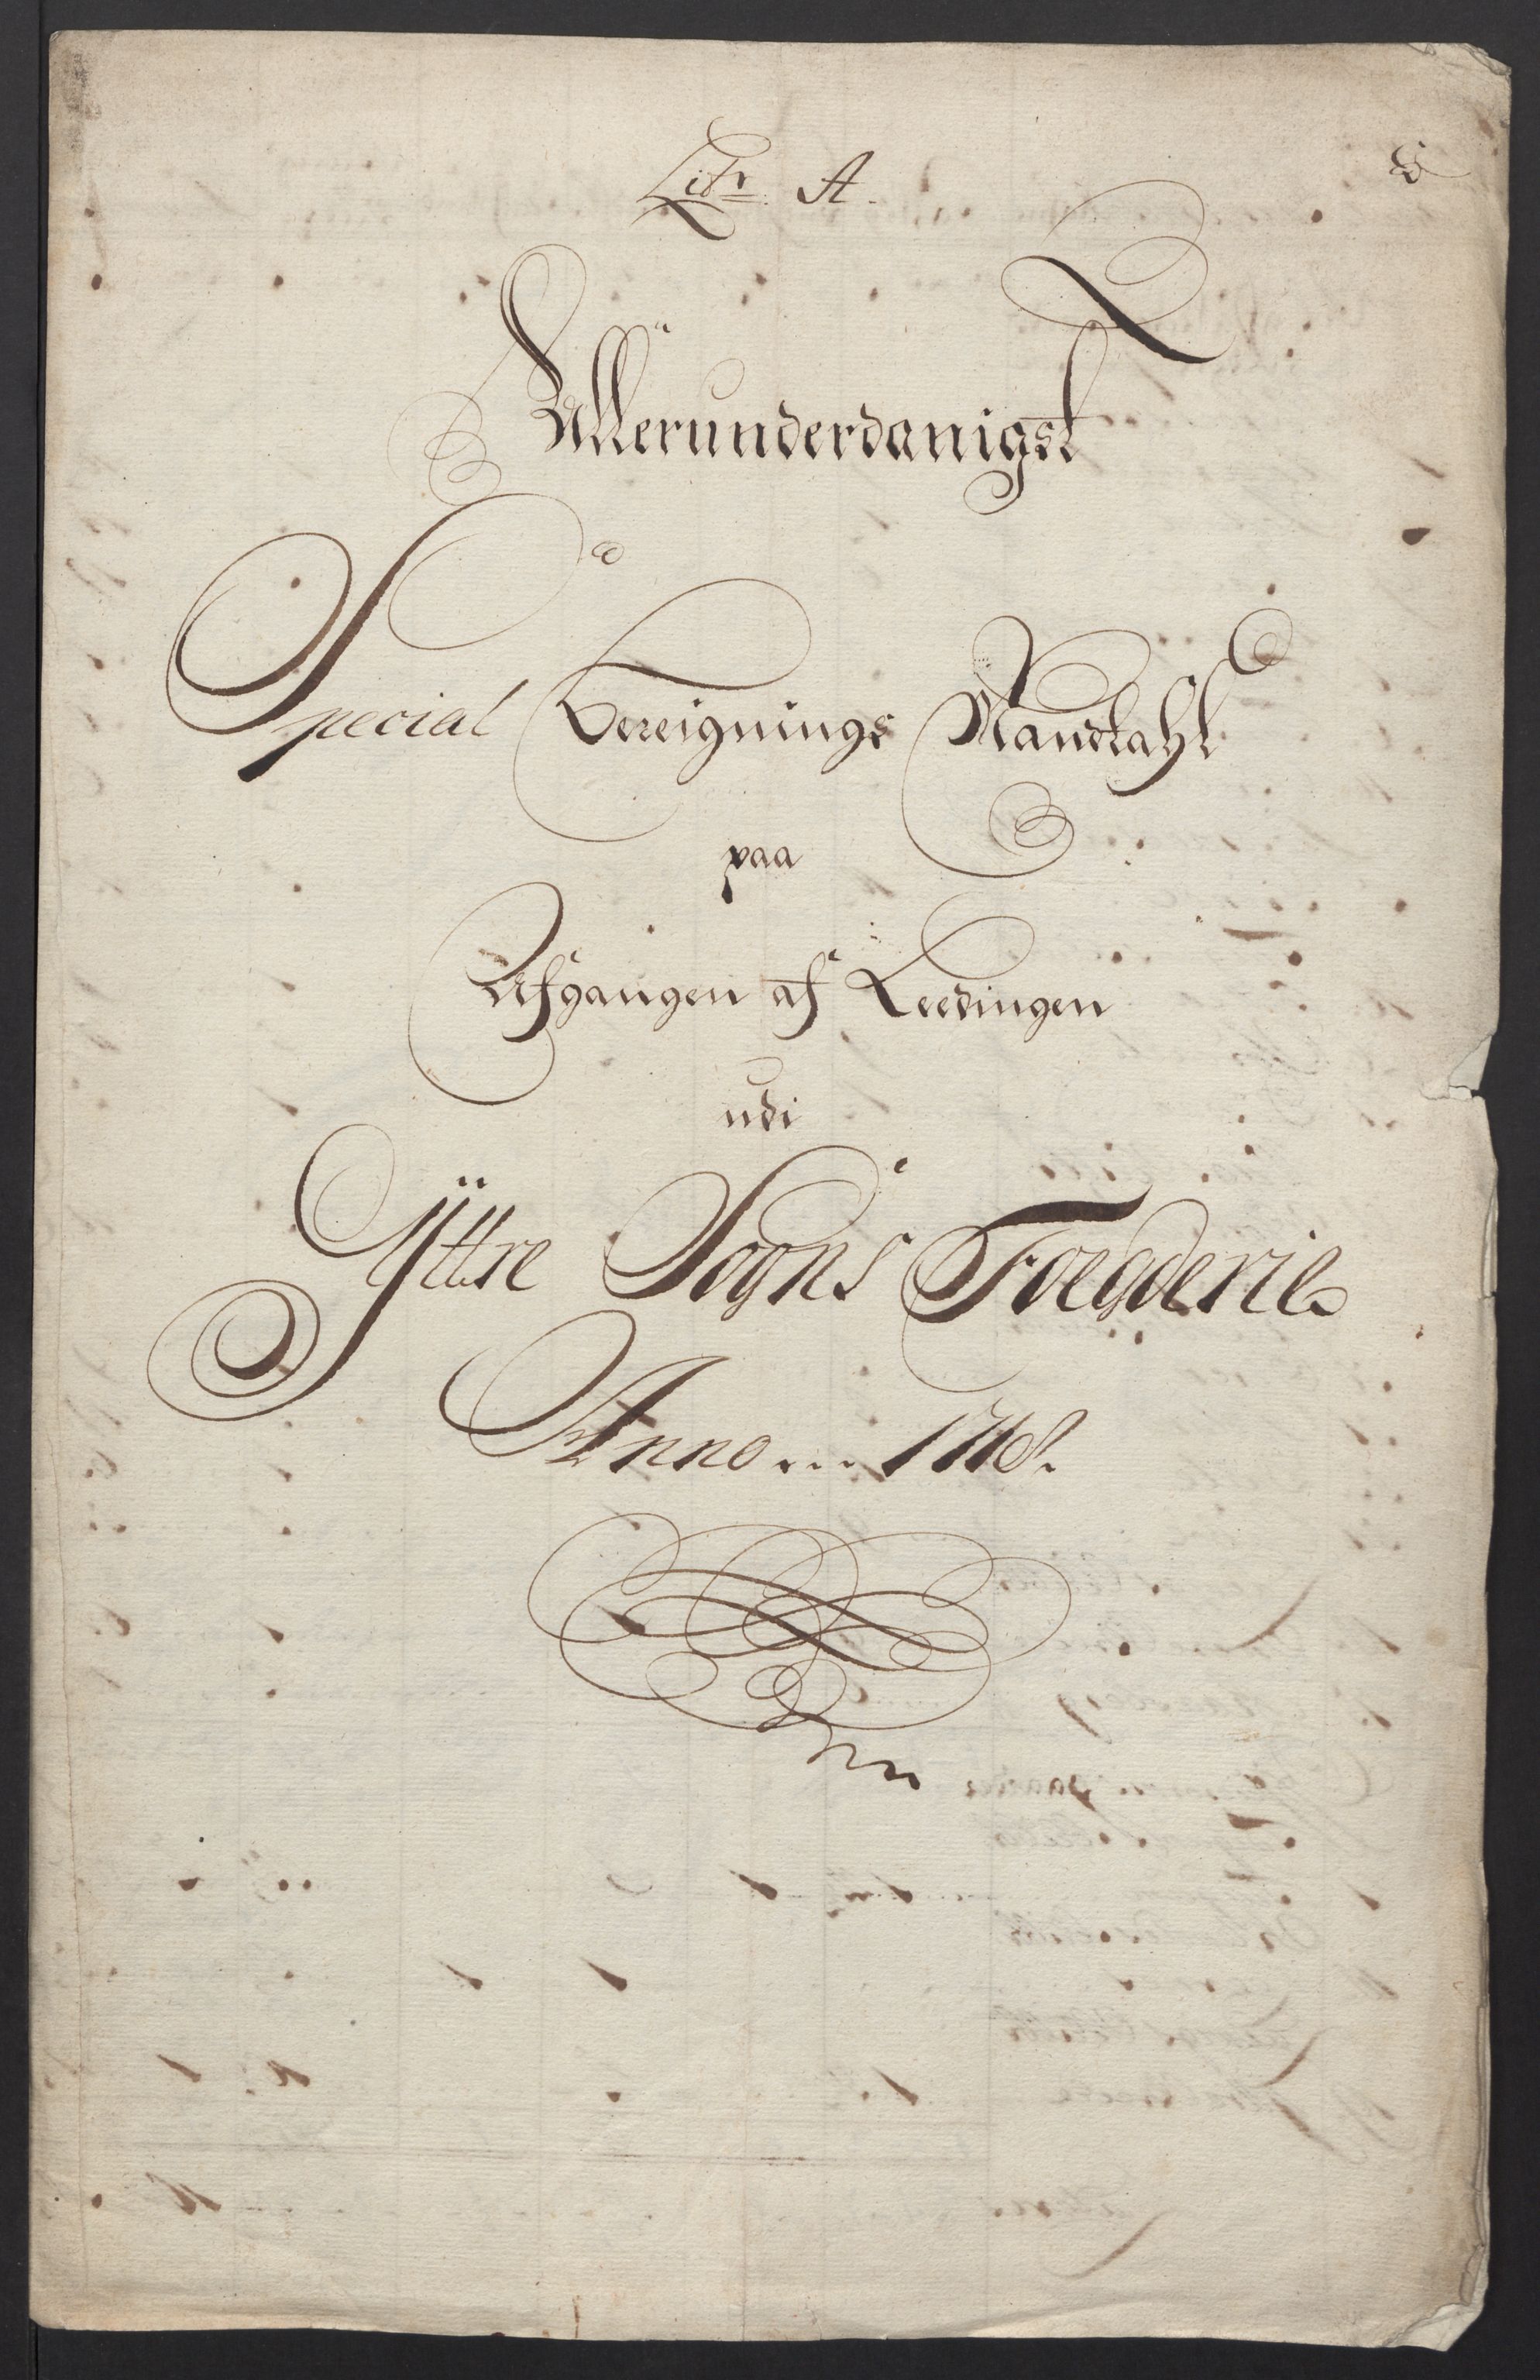 Litr: A.
Allerunderdanigst
Special Bereignings Mandtahl
paa
Afgangen af Leedingen
udi
Ÿttre Sogns Foegderie
Anno... 1718.